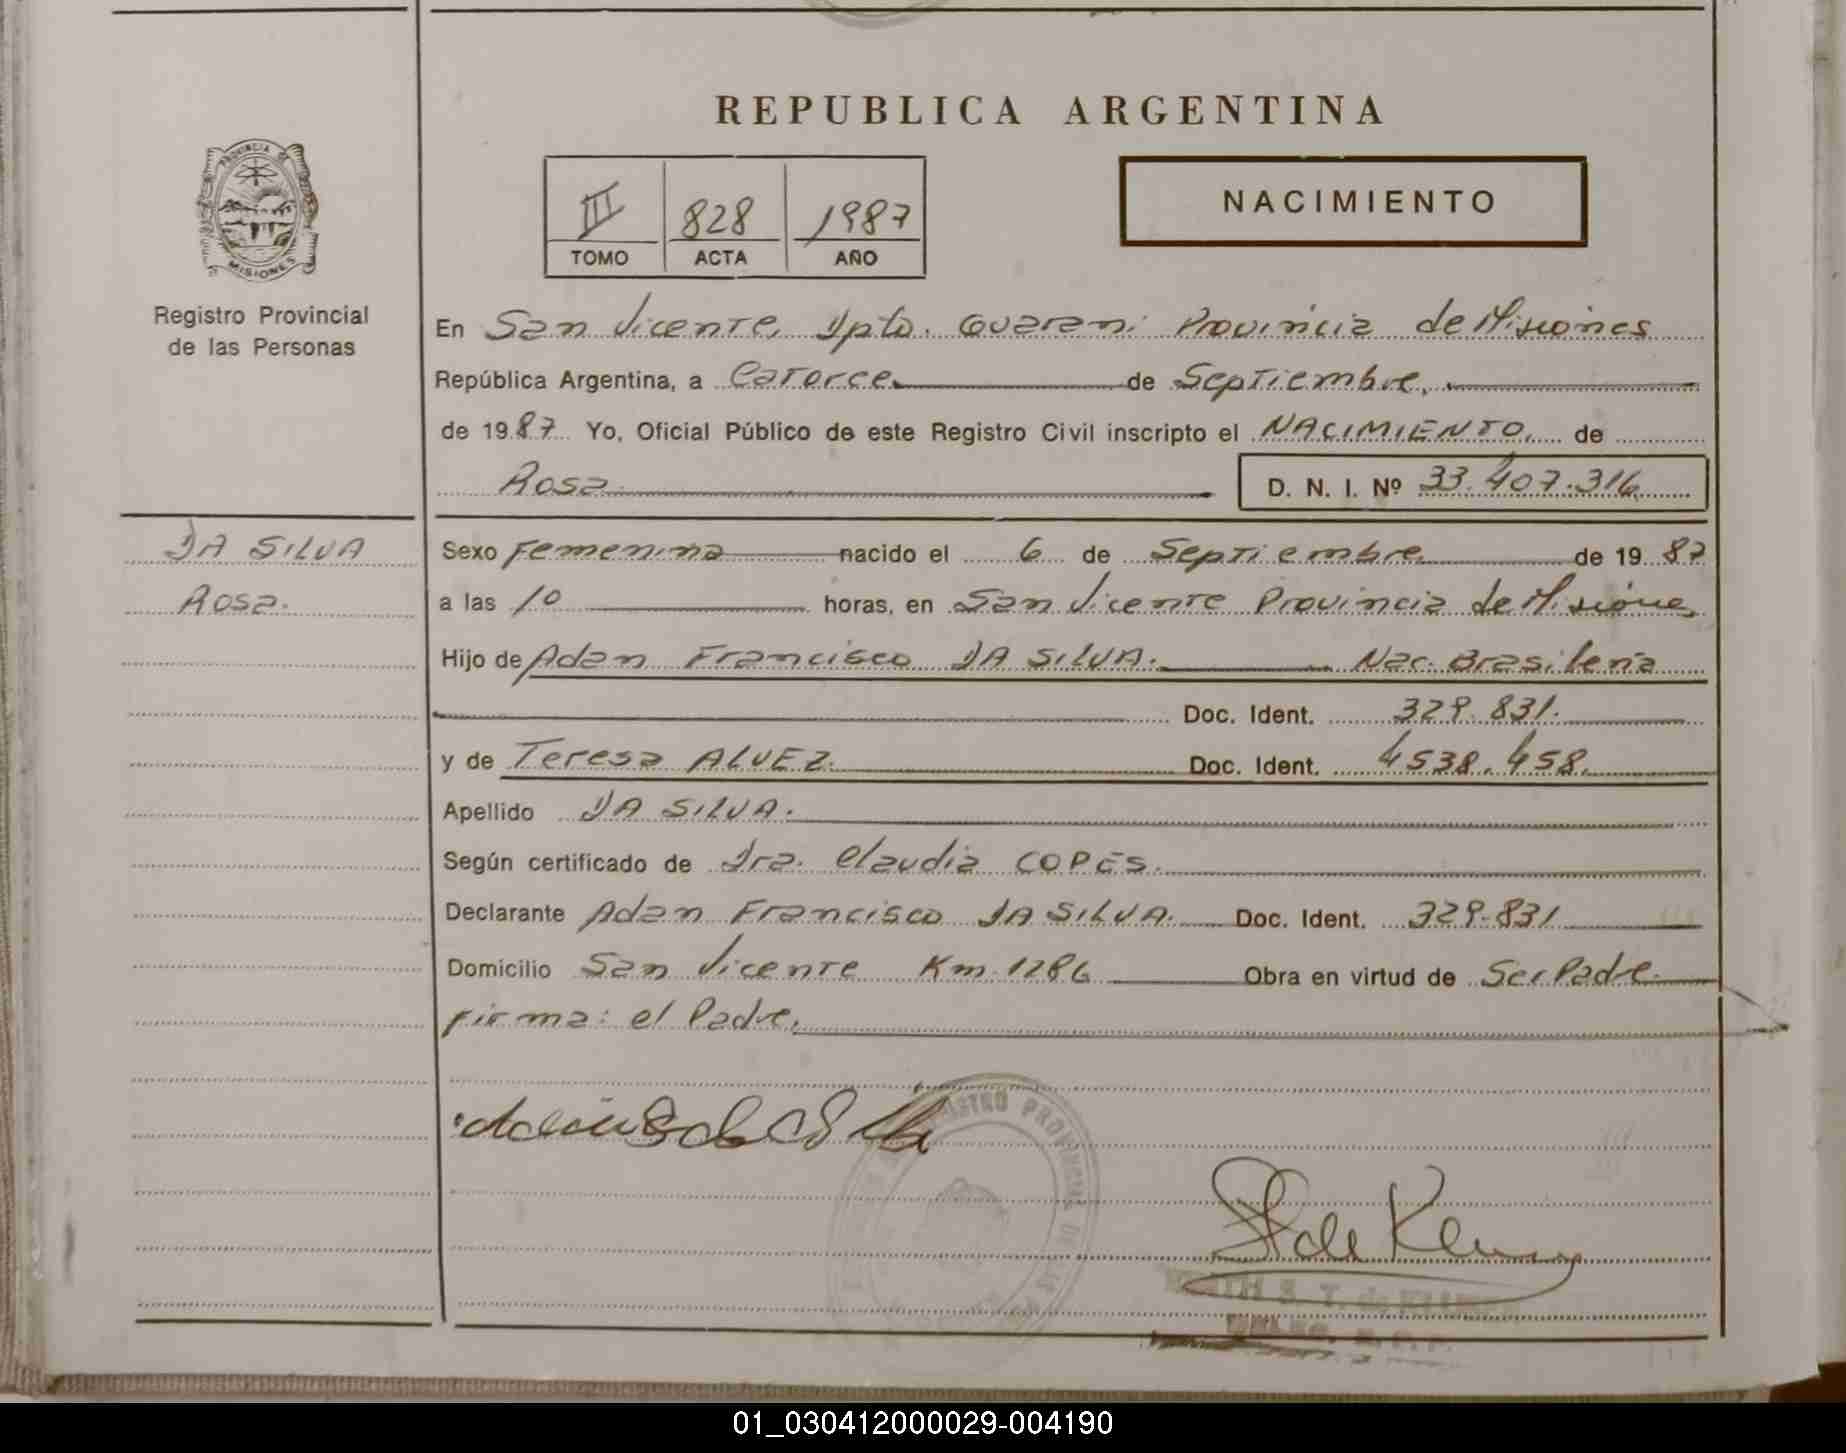 REPUBLICA ARGENTINA
PROVINCIA DE
MISIONES
Registro Provincial
de las Personas
III 828 1987
TOMO ACTA AÑO
NACIMIENTO
En San Vicente, Dpto. Guarani Provincia de Misiones
República Argentina, a Catorce de Septiembre,
de 1987 Yo, Oficial Público de este Registro Civil inscripto el NACIMIENTO, de
Rosa D. N. I. Nº 33.407.316
DA SILVA
Rosa.
Sexo Femenina nacido el 6 de Septiembre de 1987
a las 10 horas, en San Vicente Provincia de Misiones
Hijo de Adan Francisco DA SILVA. Nac. Brasileña
Doc. Ident. 329.831.
y de Teresa ALVEZ. Doc. Ident. 4538.458.
Apellido DA SILVA.
Según certificado de Dra. Claudia COPES.
Declarante Adan Francisco DA SILVA. Doc. Ident. 329.831
Domicilio San Vicente Km. 1286 Obra en virtud de Ser Padre.
Firma: el Padre.
REGISTRO PROVINCIAL DE LAS
01_030412000029-004190